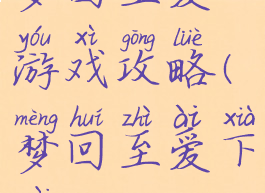 梦回至爱
yóu xì gōng lüè
游戏攻略(
mèng huí zhì ài xià
梦回至爱下